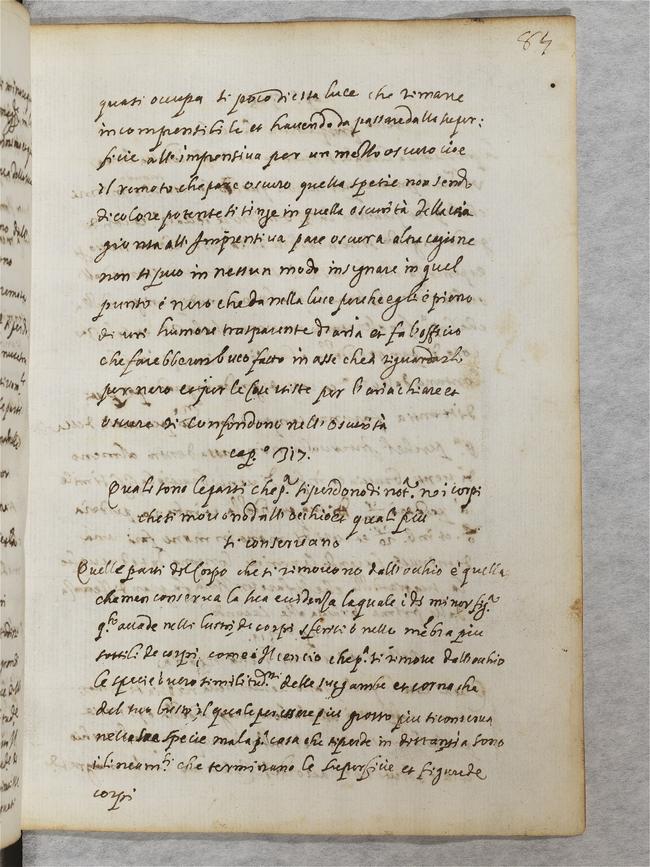 84
quasi occupa si poco di essa luce che rimane
incomprensibile et havendo da passare dalla super:
ficie alla imprensiva per un mezzo oscuro cioe
il remoto che pare oscuro quella spetie non sendo
di colore potente si tinge in quella oscurità della via
giunta alla Imprensiva pare oscura altra cagione
non si puo in nessun modo insegnare in quel
punto è nero che da nella luce perche egli è pieno
di un humore trasparente d'aria et fa l'offitio
che farebbe un buco fatto in asse che a riguardarlo
par nero et pur le cose viste per l'aria chiare et
oscure si confondono nell'oscurità
cap.º 317.
Quali sono le parti che pª. si perdono di notª. ne i corpi
che si movono dall'occhio et quali più
si conservano
Quelle parti del Corpo che si rimovono dall'occhio è quella
che men conserva la sua evidenza la quale è di minor figª
qº accade nelli lustri de corpi sferici ò nelle mēbra piu
sottili de corpi, come è Il cencio che pª. si rimove dall'occhio
le specie ò vero similitudⁿⁱ delle sue gambe et corna che
del suo busto il quale per essere più grosso più si conserva
nella sua specie ma la pª. cosa che si perde in distantia sono
i lineamᵗⁱ che terminano le superficie et figure de
corpi